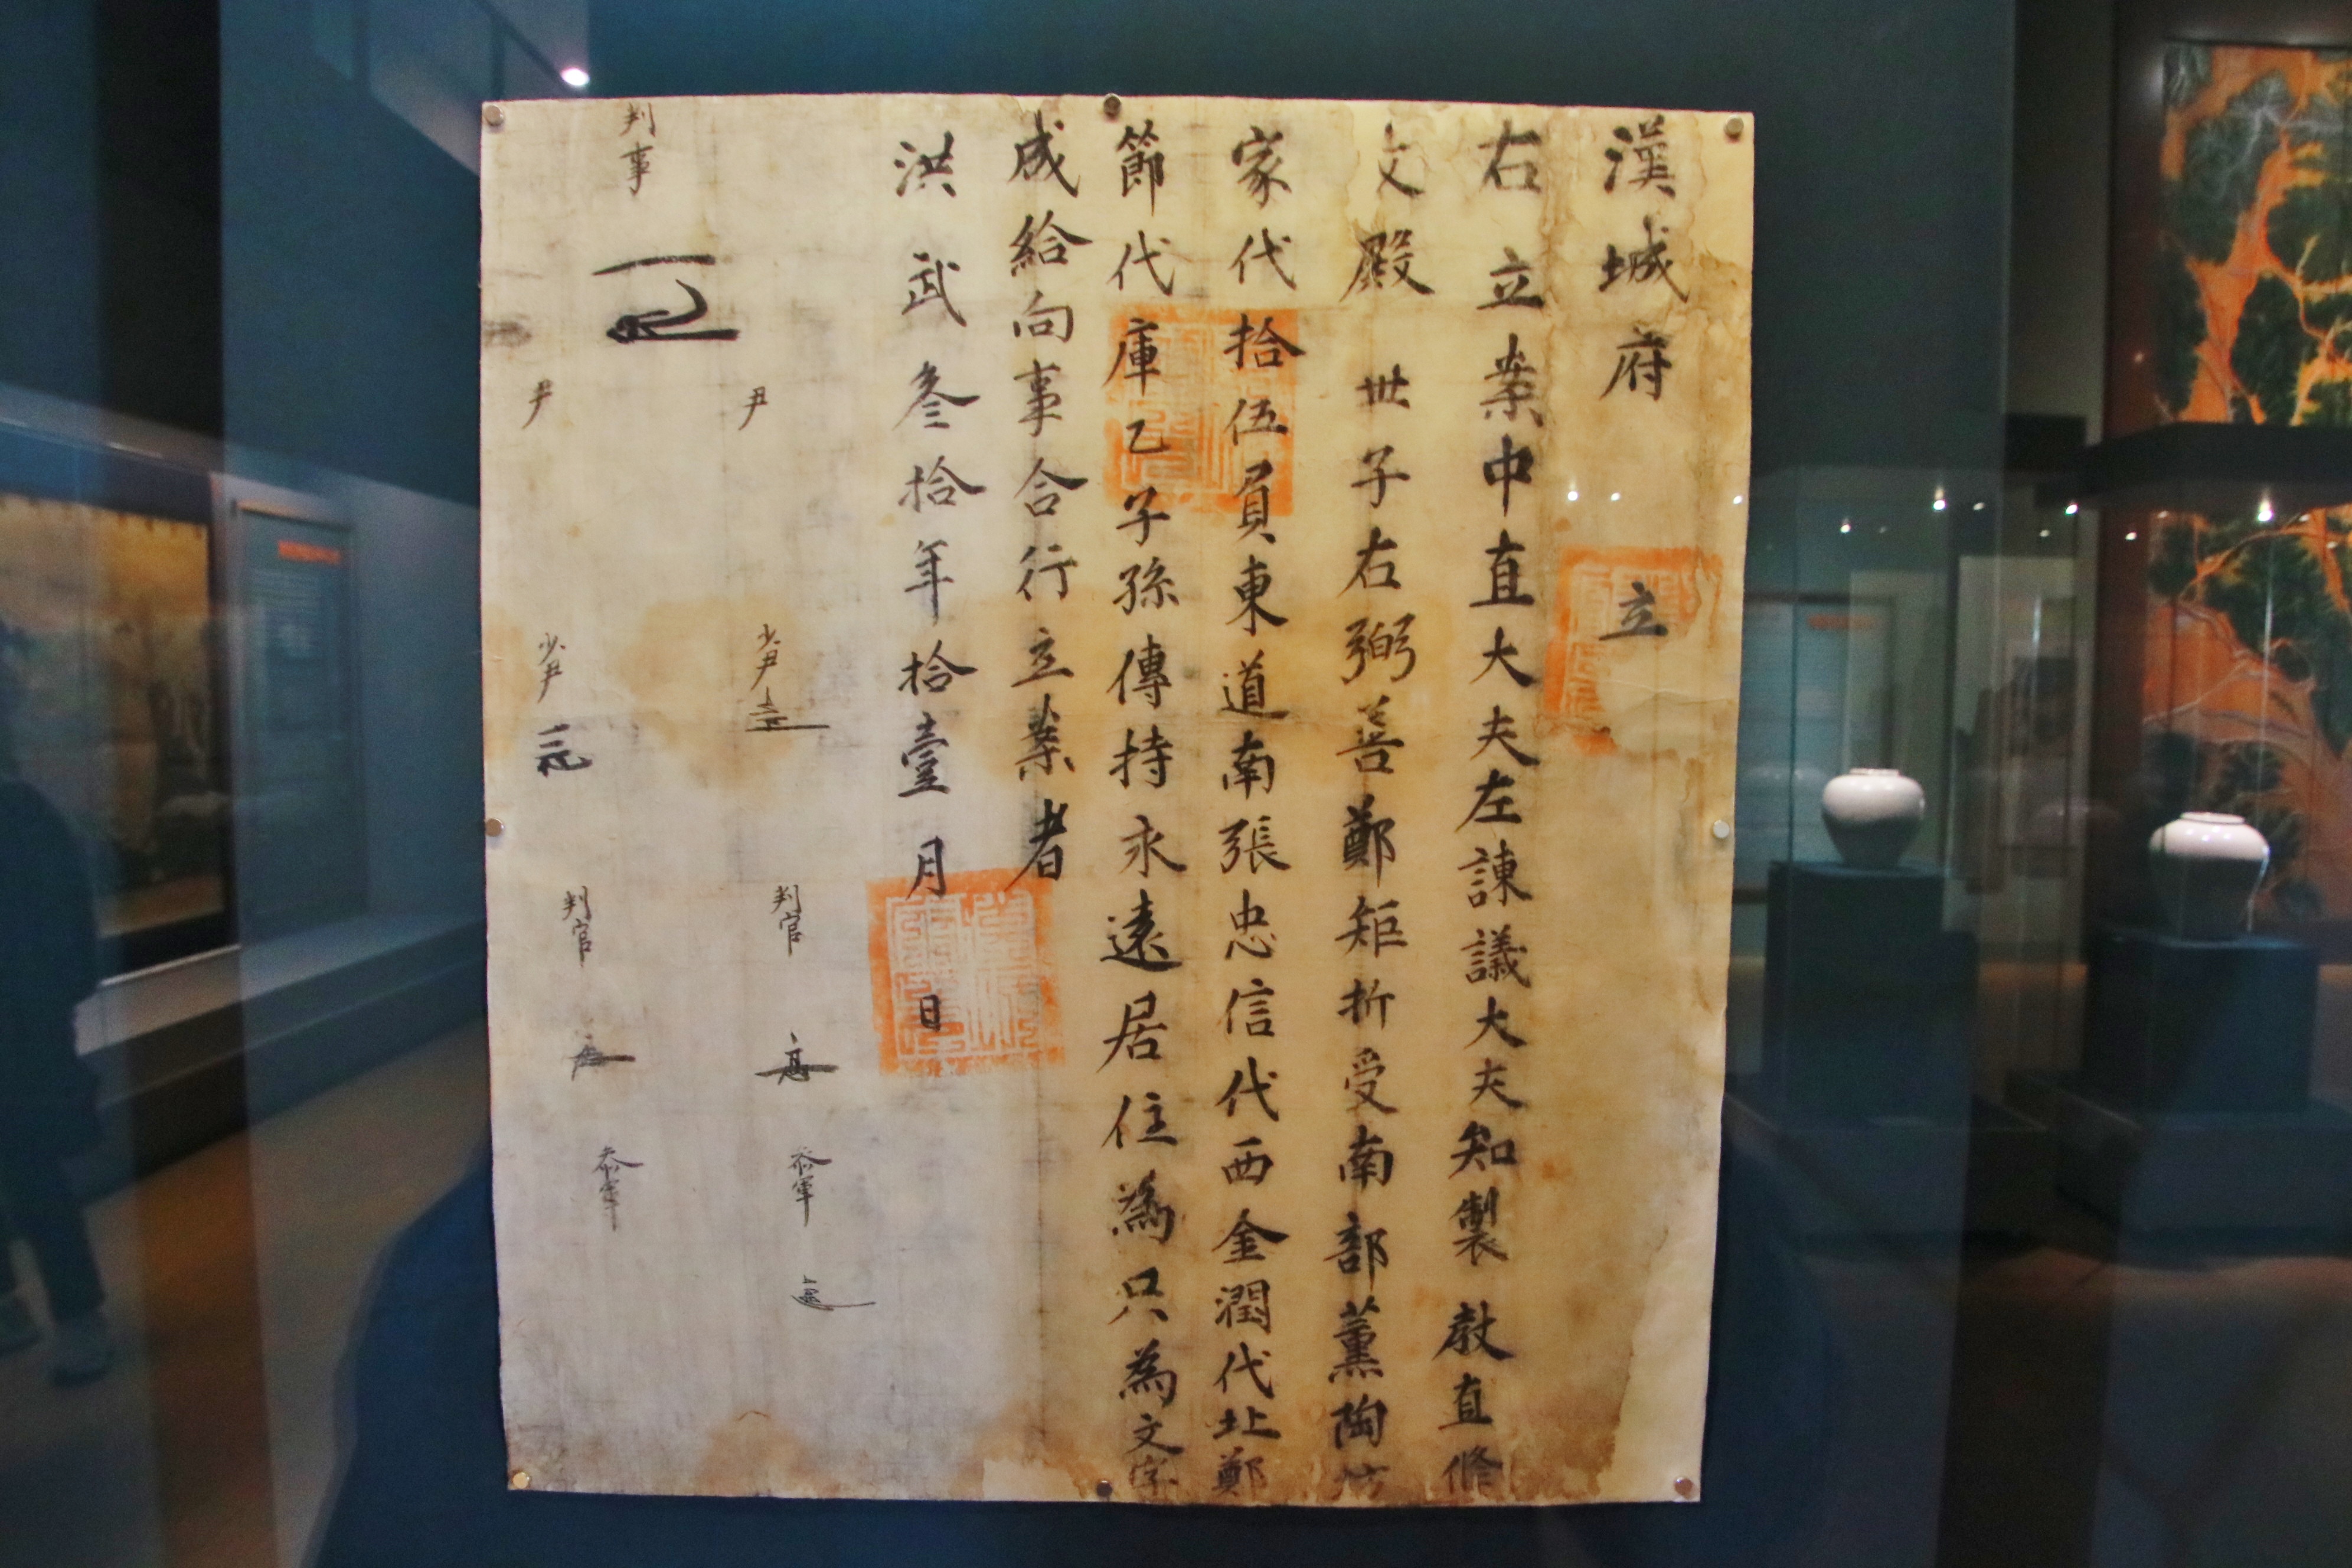 漢城府 立
右立案中直大夫左諫議大夫知製 敎直修
文殿 世子右弼善鄭矩折受南部薰陶坊
家代拾伍負東道南張忠信代西金潤代北鄭
節代庫乙子孫傳持永遠居住爲只爲文字
成給向事合行立案者
洪武叄拾年拾壹月 日
判事
尹
尹
少尹
少尹
判官
判官
叅軍
叅軍